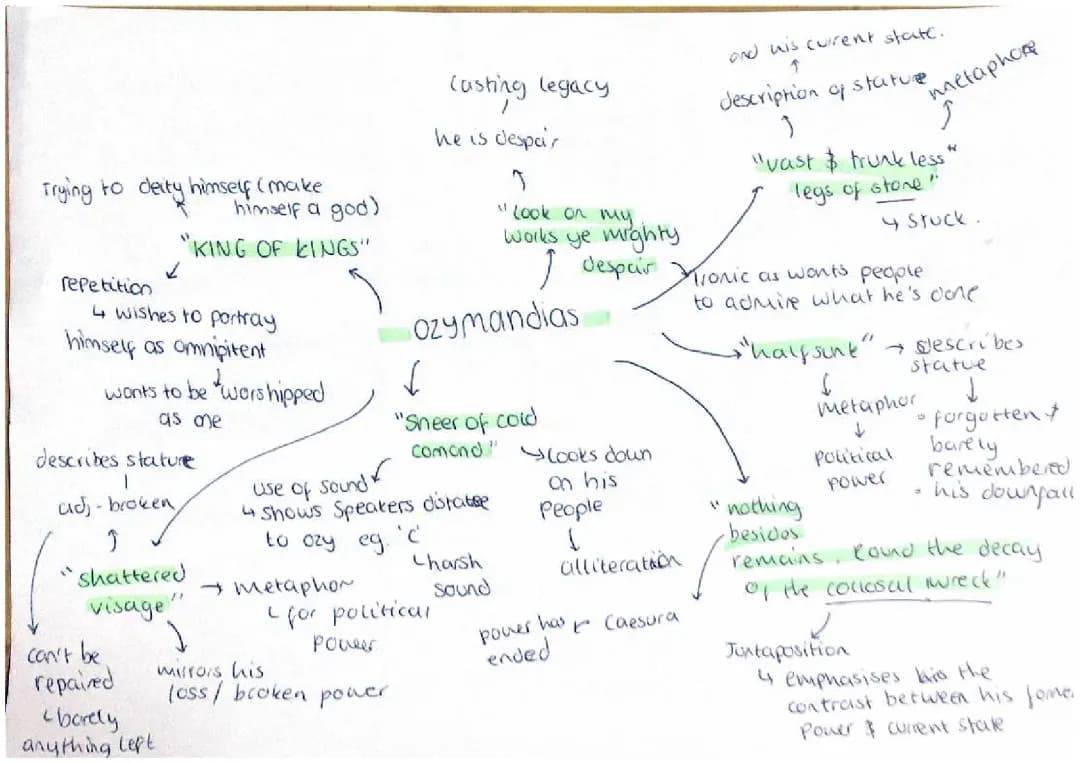 Ozymandias
"KING OF KINGS"
Trying to deity himself (make
himself a god)
repetition
↳ wishes to portray
himself as omnipitent
wants to be worshipped
as one
"Look on my
works ye mighty
despair
he is despair
lasting legacy
Ironic as wants people
to admire what he's done
"vast & trunkless"
legs of stone"
↳ stuck.
description of stature
and his current state.
metaphore
"half sunk" → describes
statue
metaphor
political
power
• forgotten +
barely
remembered
• his downfall
"nothing
besides
remains. Round the decay
of the collosal wreck"
Caesura
power has
ended
Juxtaposition
↳ emphasises the
contrast between his
power & current state
"Sneer of cold
comand"
use of sound
↳ shows speakers distaste
to ozy eg. 'c'
↳ harsh
sound
Looks down
on his
people
alliteration
"shattered
visage"
→ metaphor
↳ for political
power
mirrors his
loss / broken power
adj - broken
describes stature
can't be
repaired
↳ barely
anything left